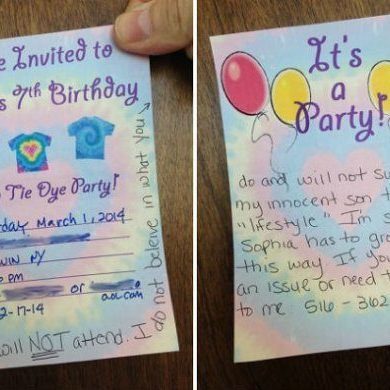 e Invited to
s 7th Birthday
Tie Dye Party!
day March 1, 2014
WIN NY
PM
or
aol.com
2-17-14
will NOT attend. I
do not beleive in what you →
It's
a
Party!
do and will not su
my innocent son
"lifestyle" I'm s
Sophia has to gro
this way If you
an issue or need t
to me 516-362